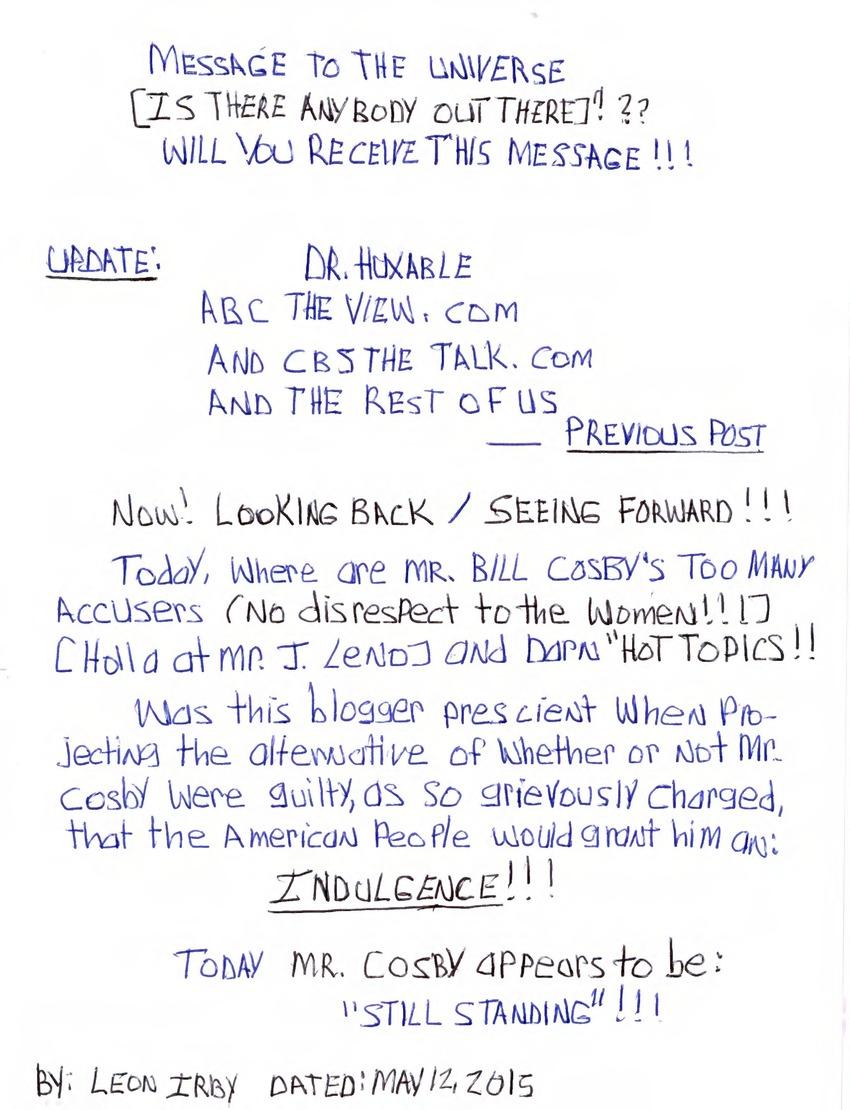 MESSAGE TO THE UNIVERSE
[IS THERE ANYBODY OUT THERE]" ??
WILL YOU RECEIVE THIS MESSAGE!!!
UPDATE: DR. HUXABLE
ABC THE VIEW. COM
AND CBS THE TALK. COM
AND THE REST OF US
— PREVIOUS POST
NOW! LOOKING BACK / SEEING FORWARD!!!
Today, Where are MR. BILL COSBY'S TOO MANY
Accusers (No disrespect to the Women!!!]
[Holla at MR. J. LENO] AND DARN "HOT TOPICS!!
Was this blogger prescient When Pro-
jecting the alternative of Whether or Not Mr.
Cosby Were guilty, as so grievously Charged,
that the American People would grant him an:
INDULGENCE!!!
TODAY MR. COSBY appears to be:
"STILL STANDING"!!!
BY: LEON IRBY DATED: MAY 12, 2015